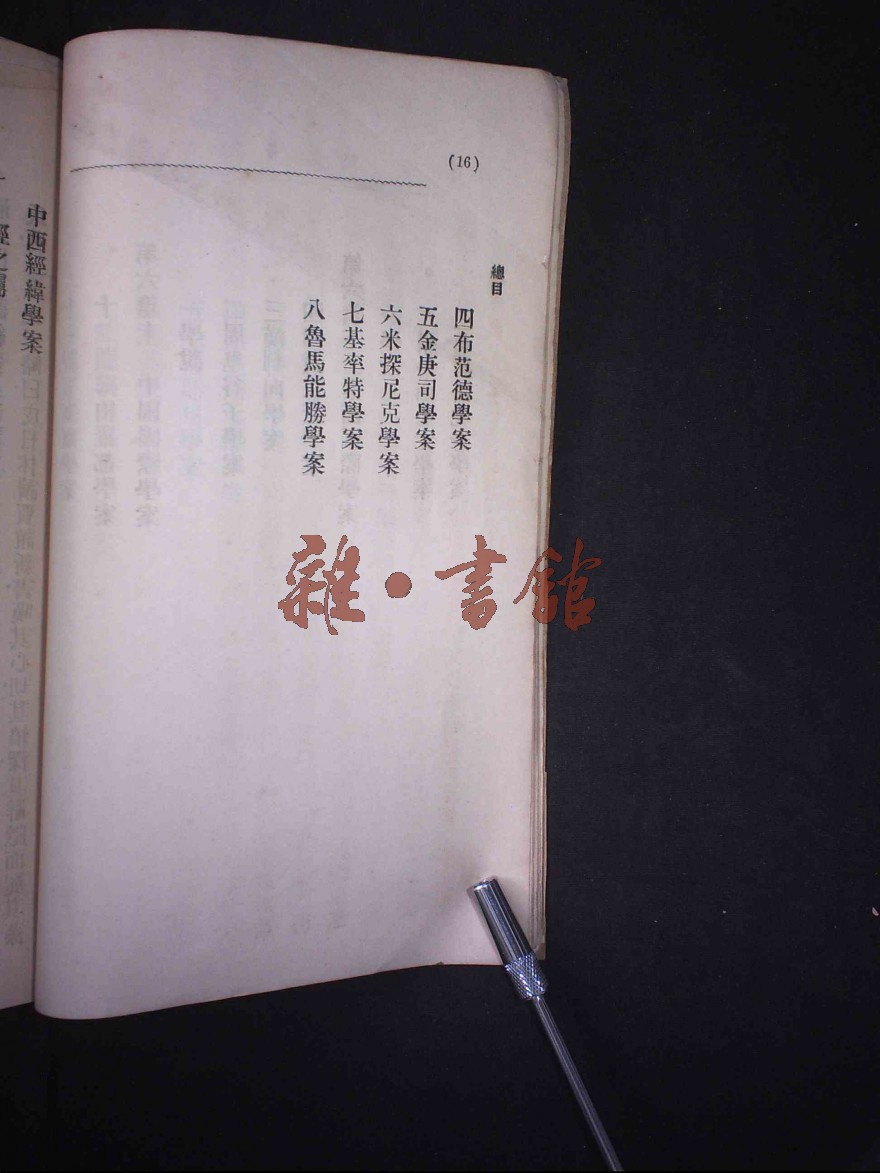 (16)
總目
四布范德學案
五金庚司學案
六米探尼克學案
七基率特學案
八魯馬能勝學案
中西經緯學案
雜·書館